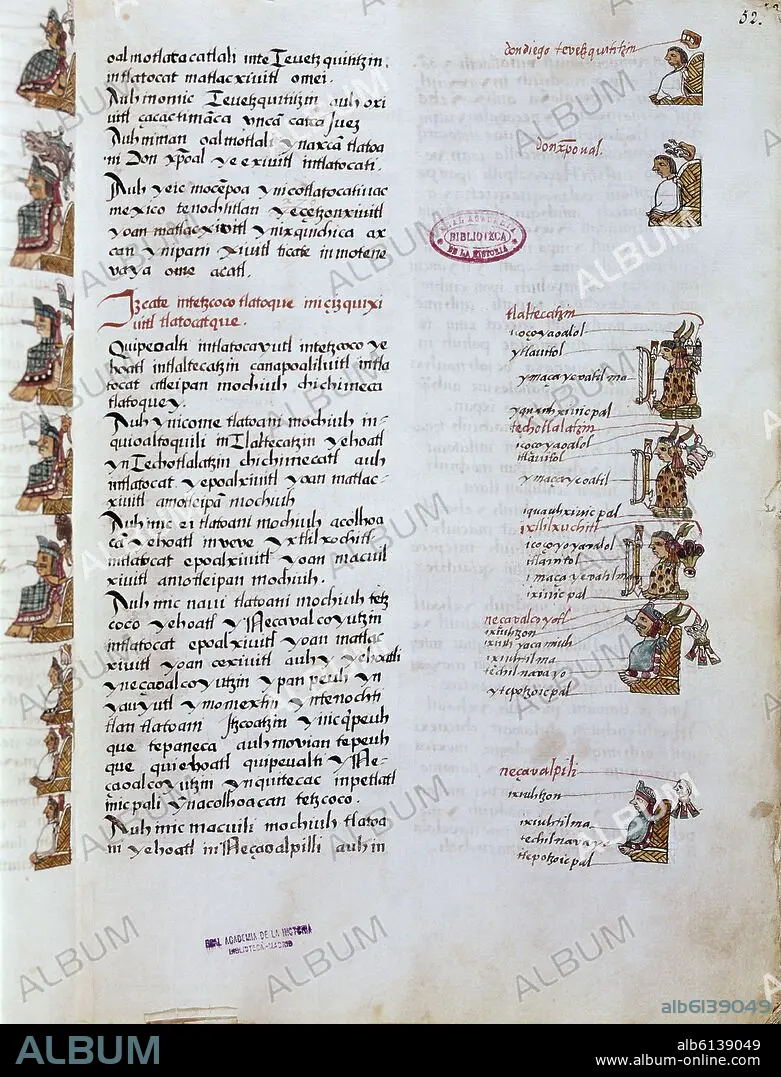 52.
oalmotlatocatlali inte Tevetzquititzin,
intlatocat matlacxiuitl omei.
Auh inomic Tevetzquititzin auh oxi
uitl çacactimãca yncã catca Juez
Auh niman oalmotlali ynaxcã tlatoa
ni Don xp̃oal ye exiuitl intlatocati.
Auh yeic mocẽpoa ynicotlatocatiuac
mexico tenochtitlan yecetzonxiuitl
yoan matlacxiuitl ynixquichica ax
can ynipani xiuitl ticate inmotene
vaya ome acatl.
Izcate intetzcoco tlatoque inicizquixi
uitl tlatocatque.
Quipeoalti intlatocayutl intetzcoco ye
hoatl intlaltecatzin çanapoaliluitl intla
tocat atleipan mochiuh chichimeca
tlatoquey.
Auh ynicome tlatoani mochiuh in-
quioaltoquili in Tlaltecatzin yehoatl
yn Techotlalatzin chichimecatl auh
intlatocat yepoalxiuitl yoan matlac-
xiuitl amotleipã mochiuh
Auh inic ei tlatoani mochiuh acolhoa
cã yehoatl inveve yxtlilxochitl
intlatocat epoalxiuitl yoan macuil
xiuitl amotleipan mochiuh.
Auh inic naui tlatoani mochiuh tetz
coco yehoatl yn Neçavalcoyutzin
intlatocat epoalxiuitl yoan matlac
xiuitl yoan cexiuitl auh yn yehoatli
yneçaoalcoyutzin ynpan peuh yn
yauyutl ynomextin yn tenochti
tlan tlatoani Itzcoatzin yniqpeuh
que tepaneca auh movian tepeuh
que quiehoatl quipeualti yn Ne-
çaoalcoyutzin ynquitecac inpetlatl
inicpali ynacolhoacan tetzcoco.
Auh inic macuili mochiuh tlatoa
ni yehoatl in Neçaoalpilli auh in
don diego tevetzquititzin
don xp̃oual.
REAL ACADEMIA
BIBLIOTECA
DE LA HISTORIA
tlaltecatzin
icoçoyaoalol
ytlauitol
ymacayevatilma-
yquauhxinicpal
techotlalatzin
icoçoyaoalol
itlauitol
ymaçayeoatil
iquauhxinicpal
ixtlilxuchitl
icoçoyoyaualol
itlauitol
imacayevatilma
ixinicpal
neçavalcoyotl
ixiuhtzon
ixiuhyacamiuh
ixiuhtilma
itechilnavayo
ytepotzoicpal
neçavalpili
ixiuhtzon
ixiuhtilma
itechilnavayo
itlepotzoicpal
REAL ACADEMIA DE LA HISTORIA
BIBLIOTECA-MADRID
ALBUM
alb6139049
ALBUM
alb6139049
www.album-online.com